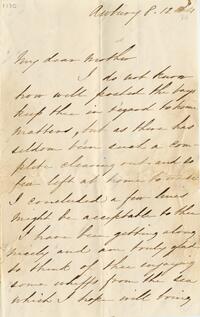 My dear Mother
I do not know
how well posted the boys
keep thee in regard to home
matters, but as there has
seldom been such a com-
plete clearing out and so
few left at home to write
I concluded a few lines
might be acceptable to thee
I have been getting along
nicely and am truly glad
to think of thee enjoying
some whiffs from the sea
which I hope will bring